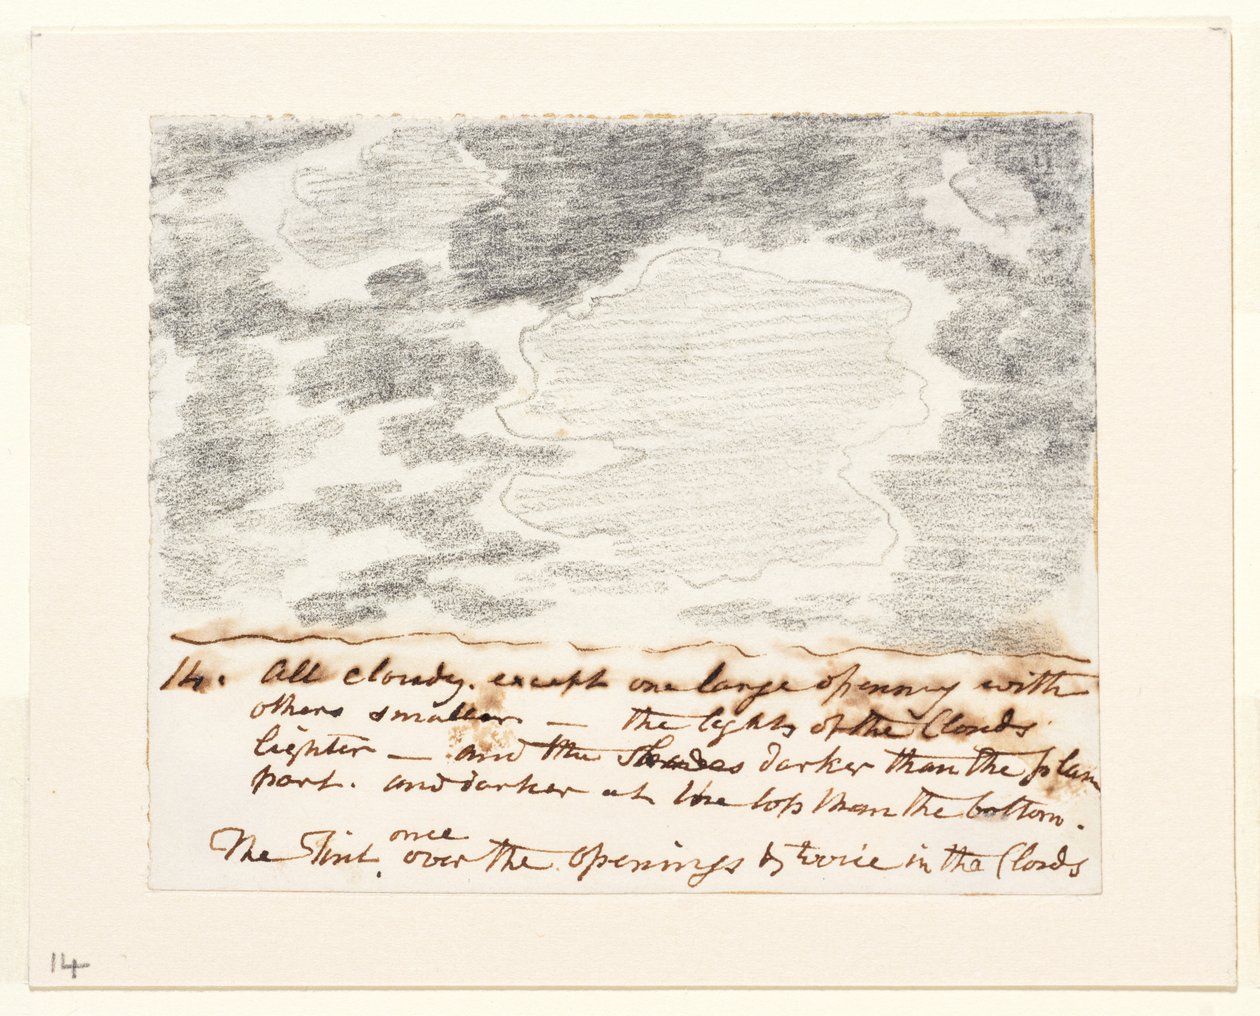 14. All cloudy. except one large openning with
others smaller — the lights of the Clouds
lighter — and the Shades darker than the plain
part. and darker at the top than the bottom.
once
The Tint, over the openings & twice in the Clouds
14